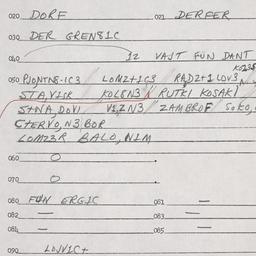 020 DORF 021 DERFER
030 DER GREN81C
040 12 VAJT FUN DANT
050 PJONTNS-1C3 LOM2+1C3 RAD2+1 LOV3
STAVISK KOLBN3 RUTKI KOSAKI
S+NA DOVI VIZN3 ZAMBROF SOKO
C+ERVO, N3 BOR
LOM23R BALO, N1M
060 O
070 O
080 FUN ERGIC 081 —
082 — 083 —
084 — 085 —
090 LOJVIC+